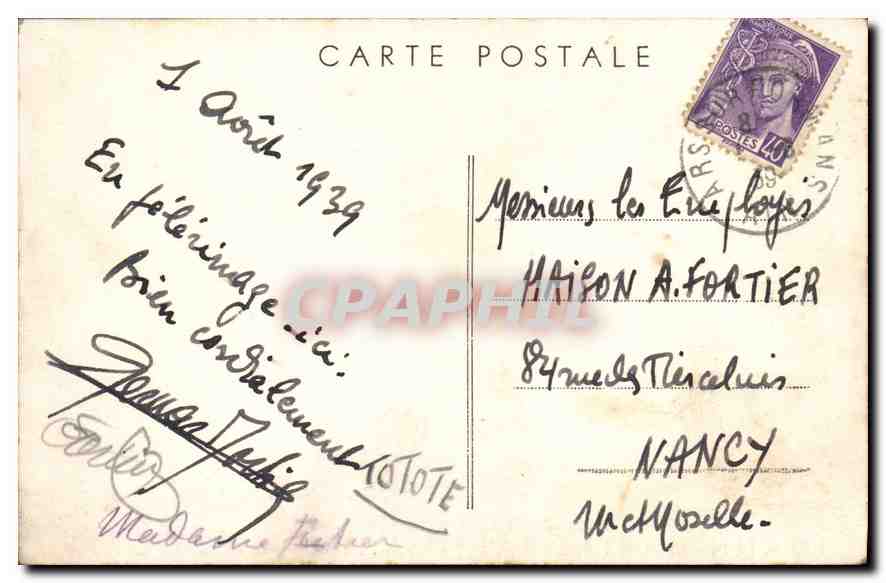 CARTE POSTALE
1 Août 1939
En pélérinage ici.
Bien cordialement
TOTOTE
Madame Fortier
POSTES 40c
ARS
Messieurs les Employés
MAISON A. FORTIER
84 rue des
NANCY
M et Moselle.
CPAPHIL